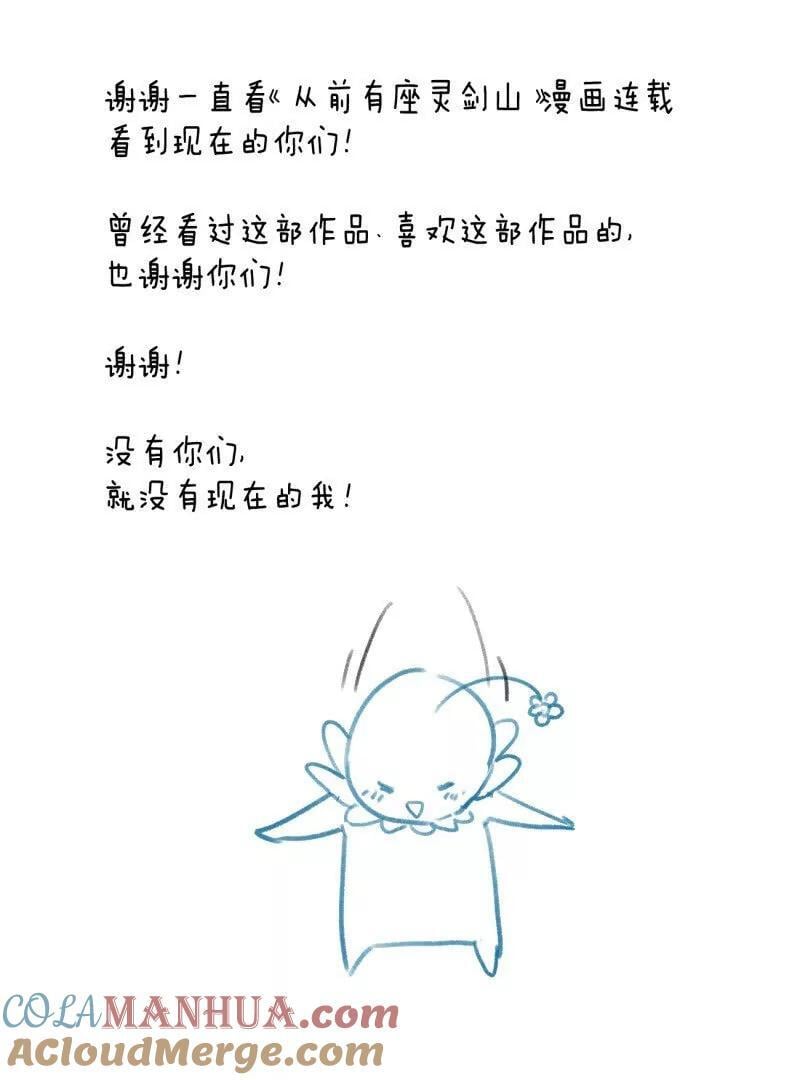 谢谢一直看《从前有座灵剑山》漫画连载
看到现在的你们！
曾经看过这部作品、喜欢这部作品的，
也谢谢你们！
谢谢！
没有你们，
就没有现在的我！
COLAMANHUA.com
AcloudMerge.com